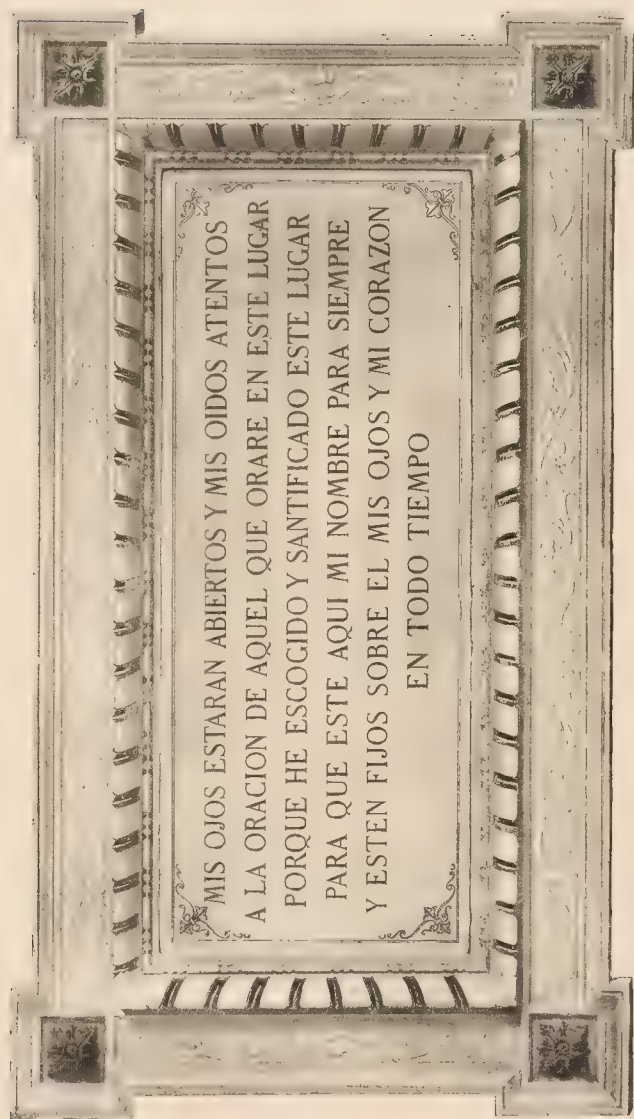 MIS OJOS ESTARAN ABIERTOS Y MIS OIDOS ATENTOS
A LA ORACION DE AQUEL QUE ORARE EN ESTE LUGAR
PORQUE HE ESCOGIDO Y SANTIFICADO ESTE LUGAR
PARA QUE ESTE AQUI MI NOMBRE PARA SIEMPRE
Y ESTEN FIJOS SOBRE EL MIS OJOS Y MI CORAZON
EN TODO TIEMPO